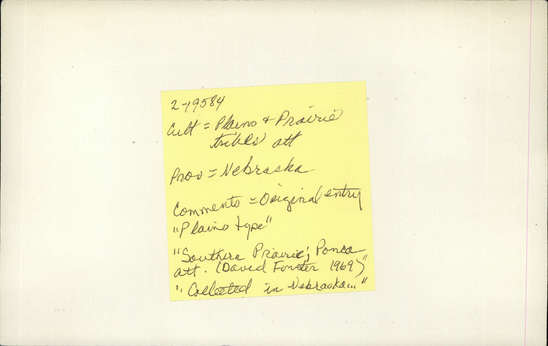 2-19584
Cult = Plains & Prairie
tribes att
Prov = Nebraska
Comments = Original entry
"Plains type"
"Southern Prairie; Ponca
att. (David Forster 1969)"
"Collected in Nebraska..."